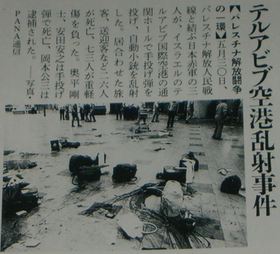 テルアビブ空港乱射事件
【パレスチナ解放闘争
の一環】五月三〇日、
パレスチナ解放人民戦
線と結ぶ日本赤軍の三
人が、イスラエルのテ
ルアビブ国際空港の通
関ホールで手投げ弾を
投げ、自動小銃を乱射
した。居合わせた旅
客、送迎客など二六人
が死亡、七三人が重軽
傷を負った。奥平剛
士、安田安之は手投げ
弾で死亡、岡本公三は
逮捕された。―写真・
PANA通信